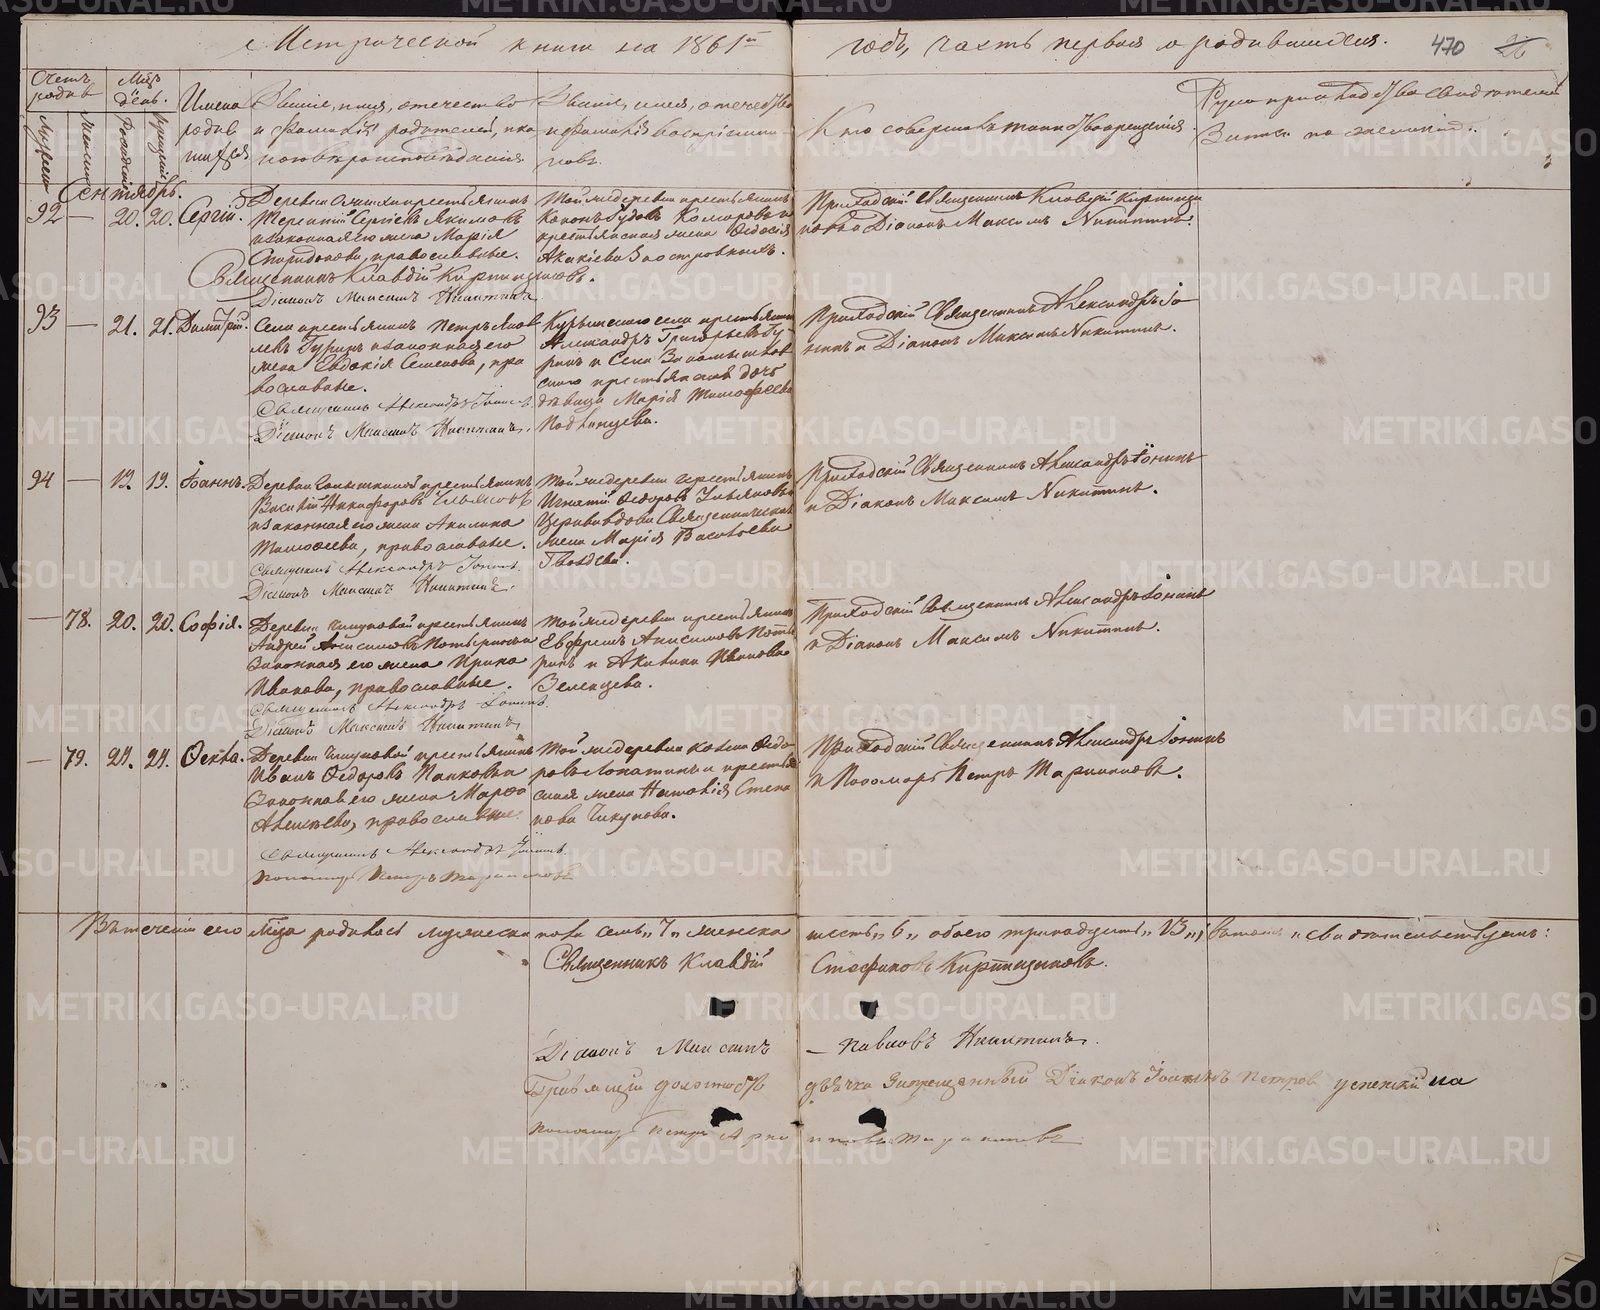 Метрической книги на 1861й годъ, часть первая о родившихся.
470
26
Счетъ родив
Мѣс. День.
Мужеск
Женск
Рожденія
Крещенія
Имена родив шихся
Званіе, имя, отечество и фамилія родителей, и ка кого вѣроисповѣданія
Званіе, имя, отечество и фамилія воспріемни ковъ
Кто совершалъ таинство крещенія
Рукоприкладство свидѣтелей записи по желанію.
Сентябрь.
92 — 20. 20. Сергій.
крестьянинъ
Терентій Сергіевъ Якимовъ
и законная его жена Марія
Спиридонова, православные.
Священникъ Клавдій Кирпищиковъ.
Діаконъ Максимъ Никитинъ
Той же деревни крестьянинъ
крестьянская жена Ѳедосія
Акакіева Заостровныхъ.
Приходскій Священникъ Клавдій Кирпищи
ковъ и Діаконъ Максимъ Никитинъ.
93 — 21. 21. Димитрій.
Села крестьянинъ Петръ Яков
левъ Гуринъ и законная его
жена Евдокія Семенова, пра
вославные.
Священникъ Александръ Іонинъ
Діаконъ Максимъ Никитинъ.
Курьинского села крестьянинъ
Александръ Григорьевъ Гу
ринъ и Села
ского крестьянина дочь
дѣвица Марія Тимофеева
Приходскій Священникъ Александръ Іо
нинъ и Діаконъ Максимъ Никитинъ.
94 — 19. 19. Іоаннъ.
Деревни крестьянинъ
Василій Никифоровъ Ульяновъ
и законная его жена Акилина
Тимофеева, православные.
Священникъ Александръ Іонинъ.
Діаконъ Максимъ Никитинъ.
Той же деревни крестьянинъ
Игнатій Ѳедоровъ Ульяновъ и
Священническая
жена Марія Васильева
Гвоздева.
Приходскій Священникъ Александръ Іонинъ
и Діаконъ Максимъ Никитинъ.
— 78. 20. 20. Софія.
Деревни Чикуновой крестьянинъ
Андрей Анисимовъ Потыринъ и
Законная его жена Ирина
Иванова, православные.
Священникъ Александръ Іонинъ.
Діаконъ Максимъ Никитинъ
Той же деревни крестьянинъ
Ефремъ Анисимовъ Поты
ринъ и Акилина Иванова
Зеленцева.
Приходскій Священникъ Александръ Іонинъ
и Діаконъ Максимъ Никитинъ.
— 79. 24. 24. Ѳекла.
Деревни Чикуновой крестьянинъ
Иванъ Ѳедоровъ Панковъ и
Законная его жена Марфа
Алексѣева, православные
Священникъ Александръ Іонинъ
Пономарь Петръ
Той же деревни Ѳедо
ровъ Лопатинъ и крестьян
ская жена Наталія Степа
нова Чикунова.
Приходскій Священникъ Александръ Іонинъ
и Пономарь Петръ
Въ теченіи сего мѣсяца родилось мужеска пола семь „7„ женска шесть „6„ обоего тринадцать „13„, въ томъ и свидѣтельствуемъ:
Священникъ Клавдій Стефановъ Кирпищиковъ.
Діаконъ Максимъ — Павловъ Никитинъ.
должность дьячка Запрещенный Діаконъ Іоаннъ Петровъ Успенскій
Пономарь Петръ
METRIKI.GASO-URAL.RU